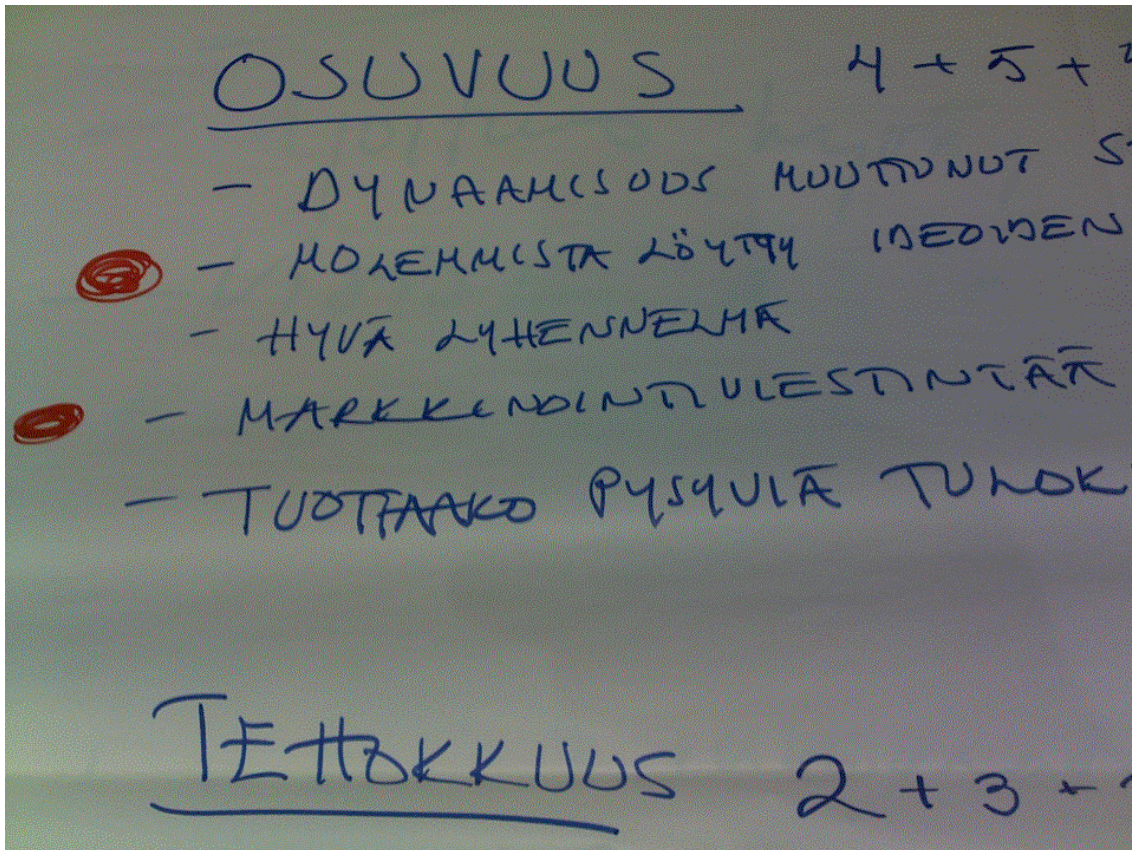 OSUVUUS 4 + 5 +
- DYNAAMISUUS MUUTTUNUT
- MOLEMMISTA LÖYTYY IDEOIDEN
- HYVÄ LYHENNELMÄ
- MARKKINOINTIVIESTINTÄÄ
- TUOTTAAKO PYSYVIÄ TULOK
TEHOKKUUS 2 + 3 +